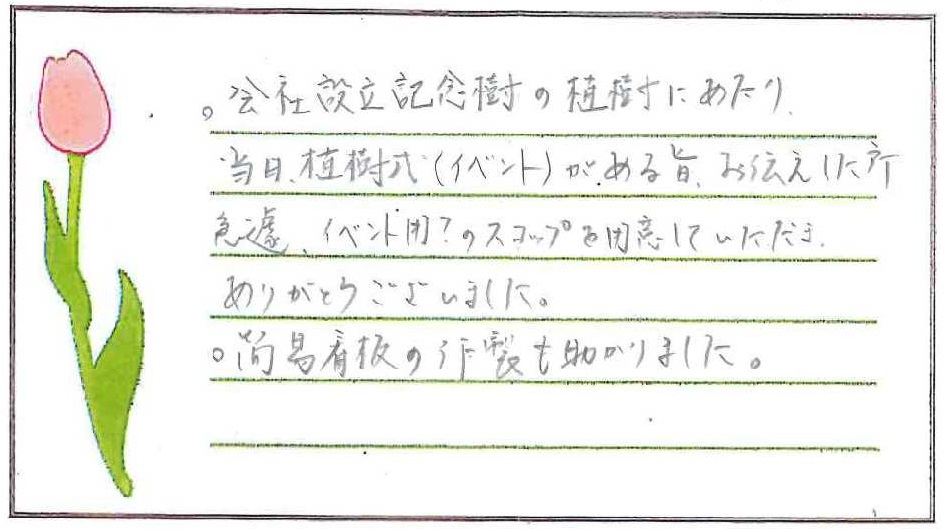 。会社設立記念樹の植樹にあたり、
当日、植樹式(イベント)がある旨、お伝えした所
急遽、イベント用?のスコップを用意していただき、
ありがとうございました。
。簡易看板の作製も助かりました。